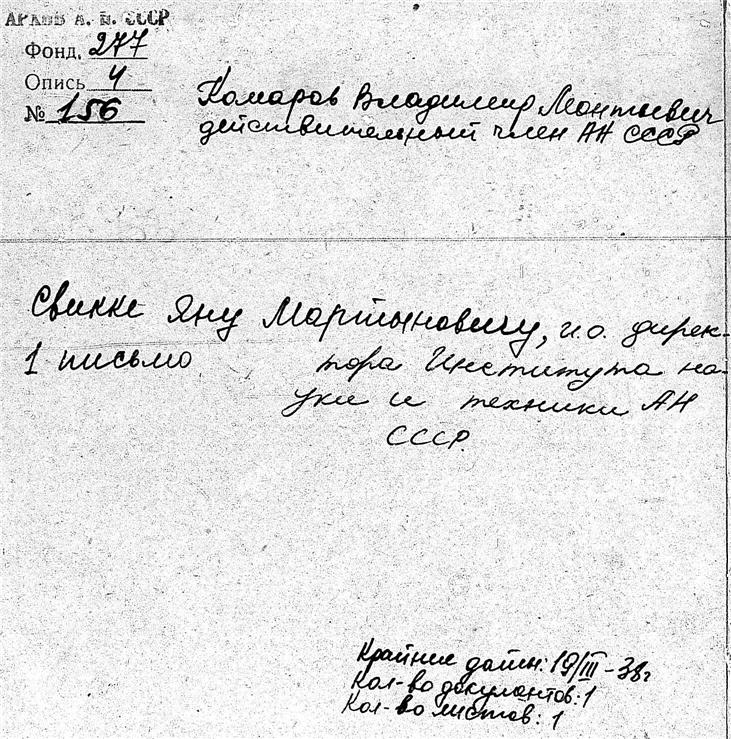 АРХИВ А. Н. СССР
Фонд. 277
Опись 4
№ 156
Комаров Владимир Леонтьевич
действительный член АН СССР
Свикке Яну Мартыновичу, и.о. дирек-
1 письмо тора Института на-
уки и техники АН
СССР.
Крайние даты: 19/III-38г
Кол-во документов: 1
Кол-во листов: 1